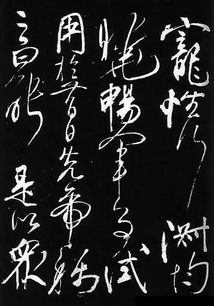 寵性行淑均
曉暢軍事試
用於昔日先帝稱
之曰能是以眾